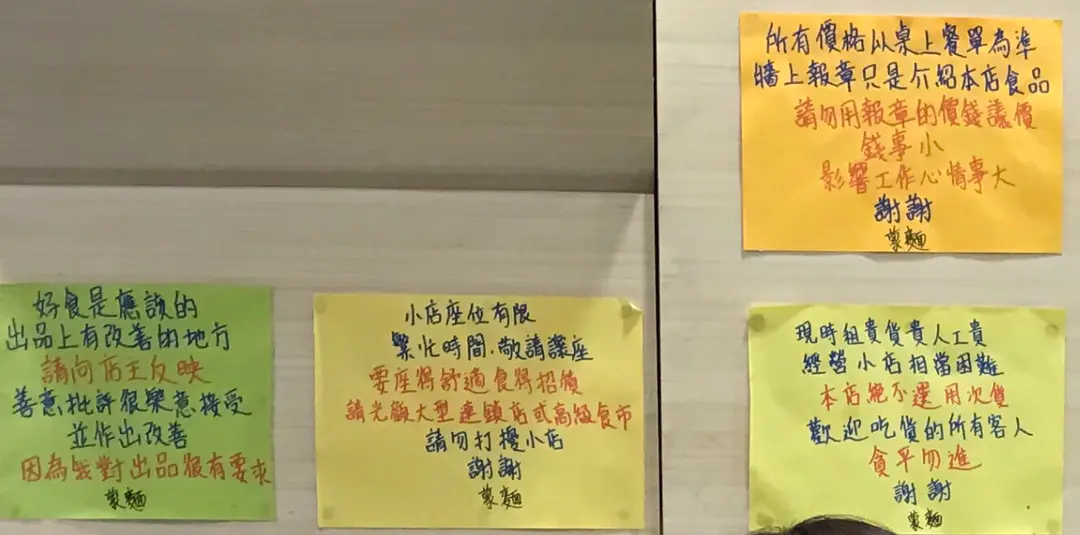 所有價格以桌上餐單為準
牆上報章只是介紹本店食品
請勿用報章的價錢議價
錢事小
影響工作心情事大
謝謝
蒙麵
好食是應該的
出品上有改善的地方
請向店主反映
善意批評很樂意接受
並作出改善
因為我對出品很有要求
蒙麵
小店座位有限
繁忙時間，敬請讓座
要座得舒適食得招積
請光顧大型連鎖店或高級食市
請勿打擾小店
謝謝
蒙麵
現時租貴貨貴人工貴
經營小店相當困難
本店絕不選用次貨
歡迎吃貨的所有客人
貪平勿進
謝謝
蒙麵